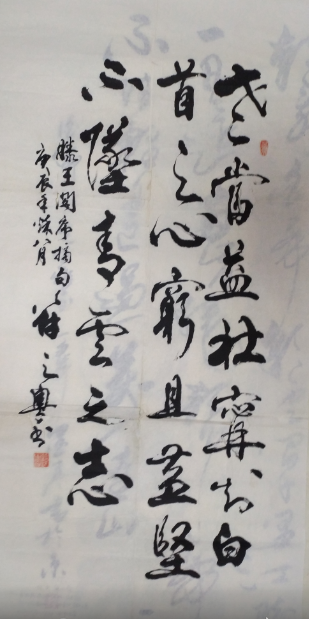 老當益壯寧知白
首之心窮且益堅
不墜青云之志
滕王閣序摘句
庚辰年秋八月
之